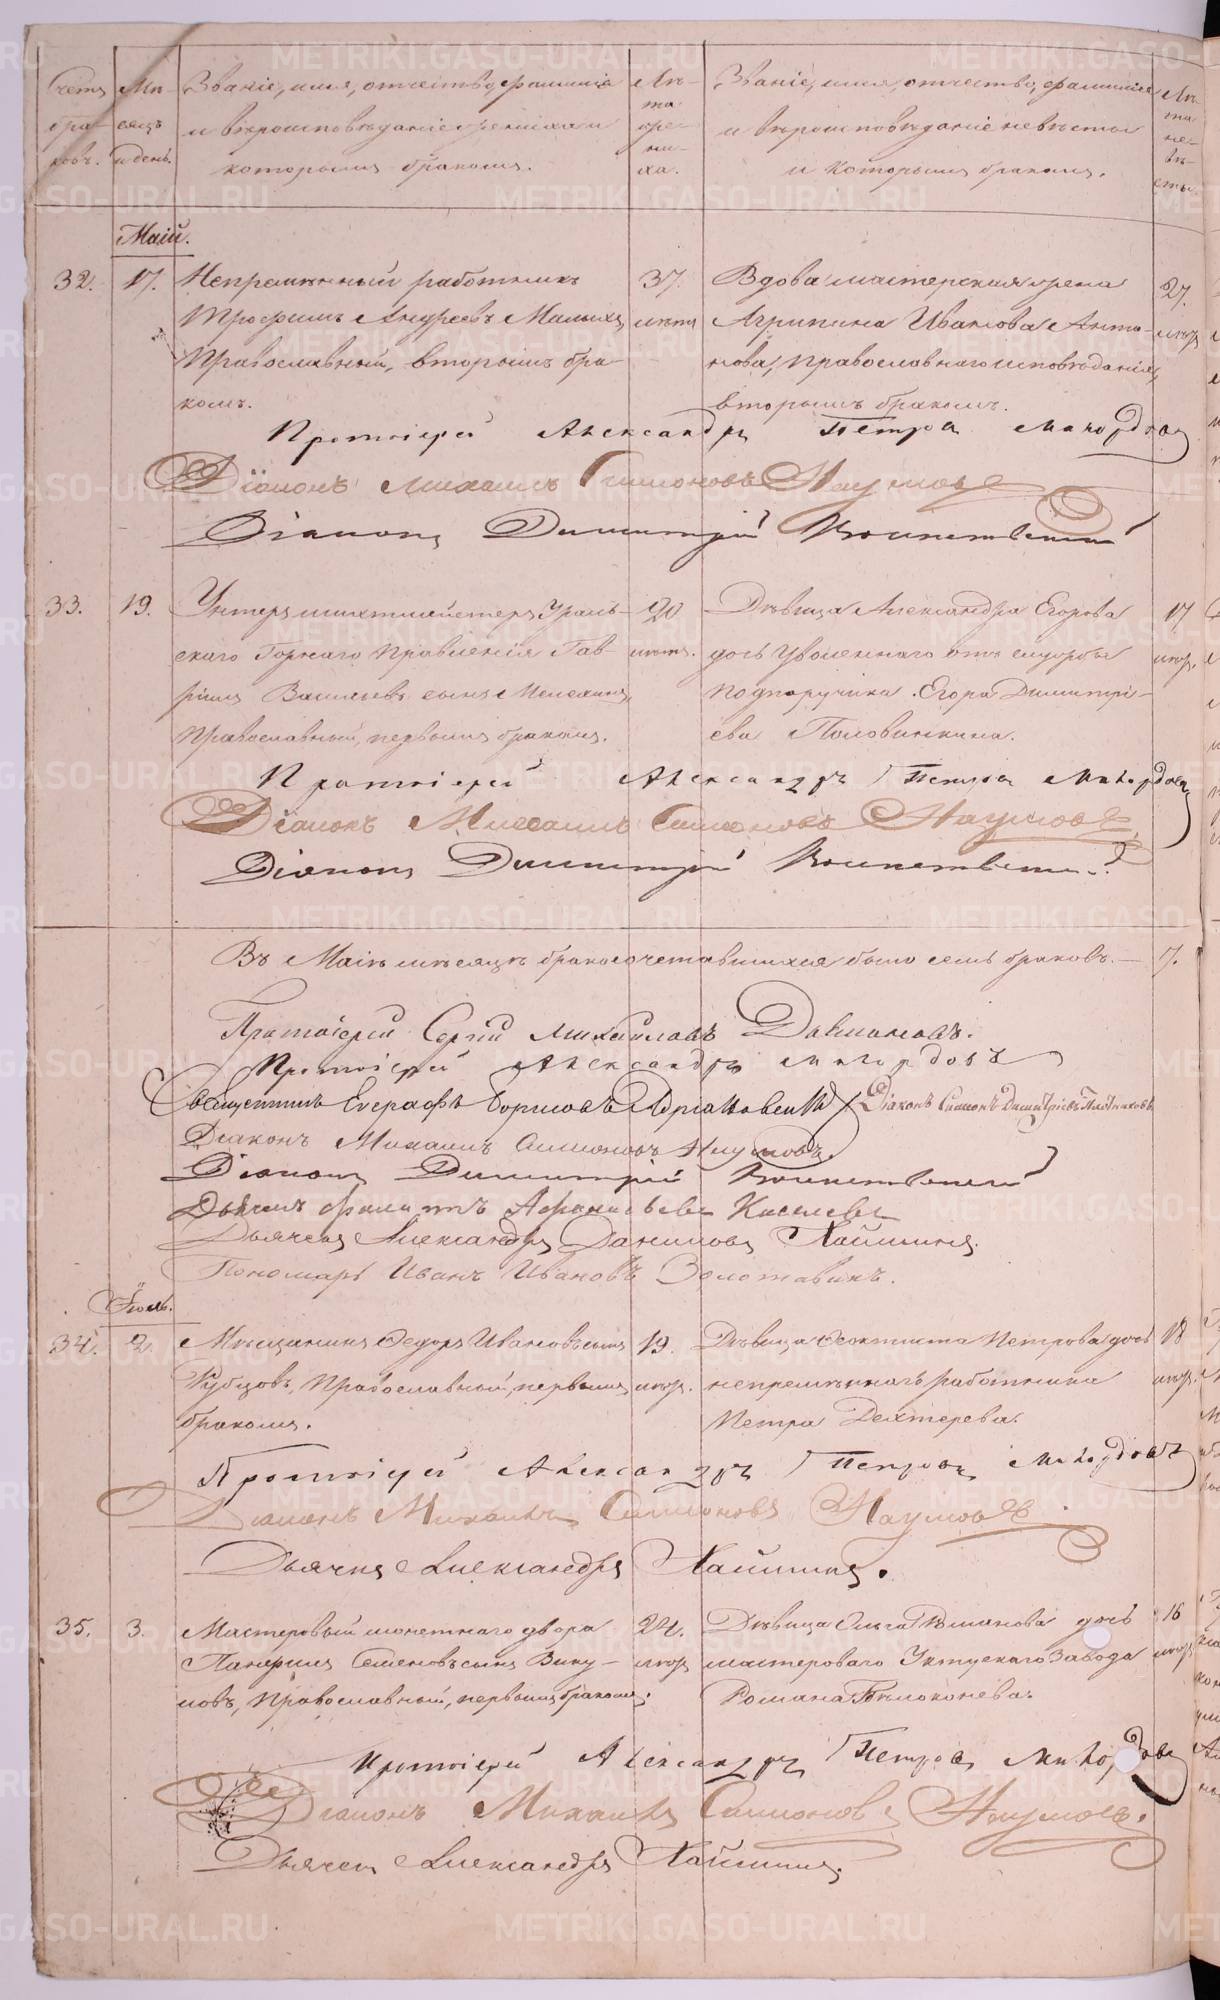 Счетъ браковъ.
Мѣсяцъ и день.
Званіе, имя, отчество, фамилія
и вѣроисповѣданіе жениха и
которымъ бракомъ.
Лѣта жениха.
Званіе, имя, отчество, фамилія
и вѣроисповѣданіе невѣсты
и которымъ бракомъ.
Лѣта невѣсты.
Маій.
32. 17. Непремѣнный работникъ 37. Вдова мастерская жена 27.
Трофимъ Андреевъ Малыхъ, лѣтъ Агрипина Иванова Анто- лѣтъ
Православный, вторымъ бра- нова, православнаго исповѣданія,
комъ. вторымъ бракомъ.
Протоіерей Александръ Петровъ Миловидовъ
Діаконъ Михаилъ Симоновъ Наумовъ
Діаконъ Димитрій Воинственскій
33. 19. Унтеръ шихтмейстеръ Ураль- 20 Дѣвица Александра Егорова 17
скаго Горнаго Правленія Гав- лѣтъ. дочь уволеннаго отъ службы лѣтъ.
ріилъ Васильевъ сынъ подпоручика Егора Димитрі-
Православный, первымъ бракомъ. ева Половинкина.
Протоіерей Александръ Петровъ
Діаконъ Михаилъ Симоновъ Наумовъ
Діаконъ Димитрій
Въ Маіѣ мѣсяцѣ бракосочетавшихся было семь браковъ. — 7.
Протоіерей Сергій Михайловъ
Протоіерей Александръ
Священникъ Евграфъ Борисовъ Діаконъ Симонъ Димитріевъ Плотниковъ
Діаконъ Михаилъ Симоновъ Наумовъ.
Діаконъ Димитрій
Дьячекъ Филиппъ Афанасьевъ Киселевъ
Дьячекъ Александръ Даниловъ Хаминъ.
Пономарь Иванъ Ивановъ Золотавинъ.
Іюль.
34. 2. Мѣщанинъ Ѳедоръ Ивановъ сынъ 19. Дѣвица Ѳеоктиста Петрова дочь 18
Рубцовъ, Православный, первымъ лѣтъ. непремѣннаго работника лѣтъ.
бракомъ. Петра Дехтерева.
Протоіерей Александръ Петровъ
Діаконъ Михаилъ Симоновъ Наумовъ
Дьячекъ Александръ Хаминъ.
35. 3. Мастеровый монетнаго двора 24. Дѣвица Ольга Романова дочь 16
Панфилъ Семеновъ сынъ Вику- лѣтъ мастероваго Уктускаго Завода лѣтъ
ловъ, Православный, первымъ бракомъ. Романа Бѣлоконева.
Протоіерей Александръ Петровъ
Діаконъ Михаилъ Симоновъ Наумовъ.
Дьячекъ Александръ Хаминъ.
METRIKI.GASO-URAL.RU